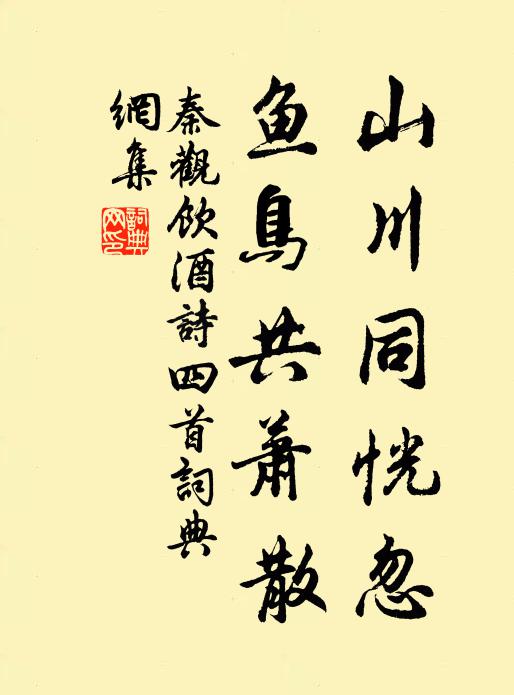 山川同恍忽
鱼鳥共萧散
秦觀飲酒詩四首詞典
網集
詞典網印